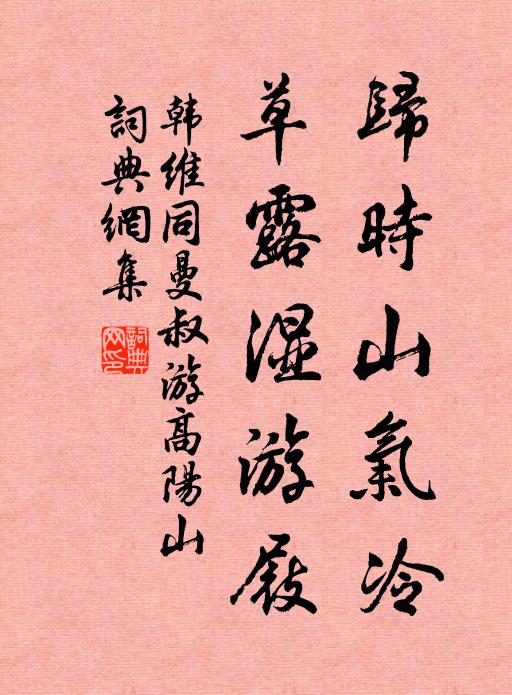 歸時山氣冷
草露濕游屐
韩維同曼叔游高陽山
詞典網集
詞典網印